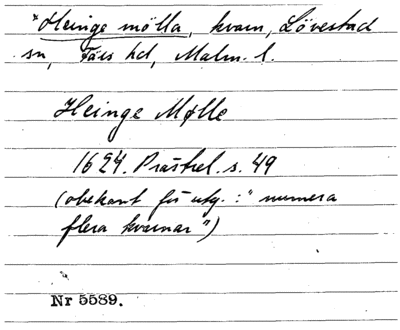 *Heinge mölla, kvarn, Lövestad
sn, Färs hd, Malm. l.
Heinge Mølle
1624. Prästrel. s. 49
(obekant för utg.: "numera
flera kvarnar")
Nr 5589.